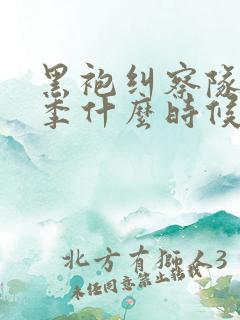 黑袍纠察队
季什麼時候
北方有獅人3
未经同意禁止转载